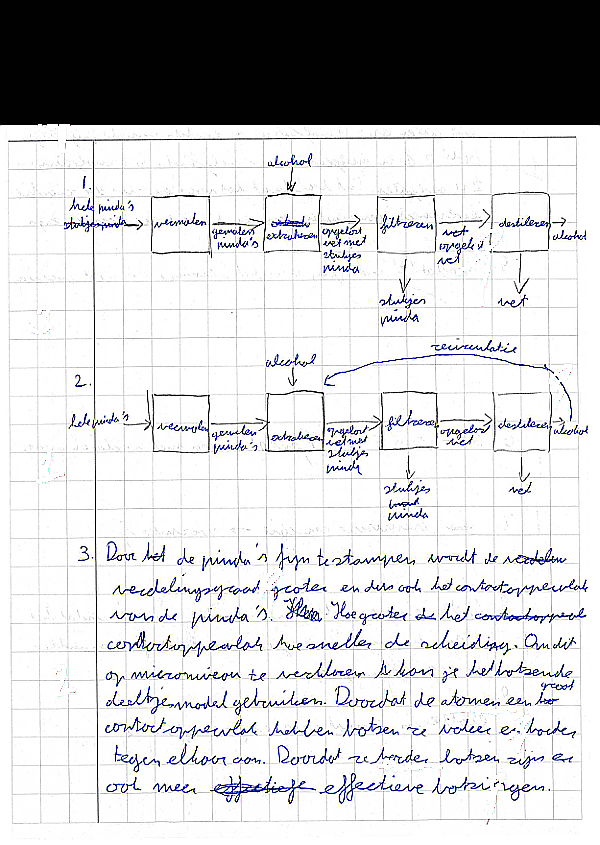 alcohol
1.
hele pinda's
stukjes pinda
vermalen
gemalen pinda's
extraheren
opgelost vet met stukjes pinda
filtreren
vet opgelost vet
destileren
alcohol
stukjes pinda
vet
recirculatie
2.
alcohol
hele pinda's
vermalen
gemalen pinda's
extraheren
opgelost vet met stukjes pinda
filtreren
opgelost vet
destileren
alcohol
stukjes
pinda
vet
3. Door het de pinda's fijn te stampen wordt de verdelin
verdelingsgraad groter en dus ook het contactoppervlak
van de pinda's. Hoe groter de het contactoppervl
contactoppervlak hoe sneller de scheiding. Om dit
op microniveau te verklaren kan je het botsende
deeltjesmodel gebruiken. Doordat de atomen een groot
contactoppervlak hebben botsen ze vaker en harder
tegen elkaar aan. Doordat ze harder botsen zijn er
ook meer effectiefe effectieve botsingen.